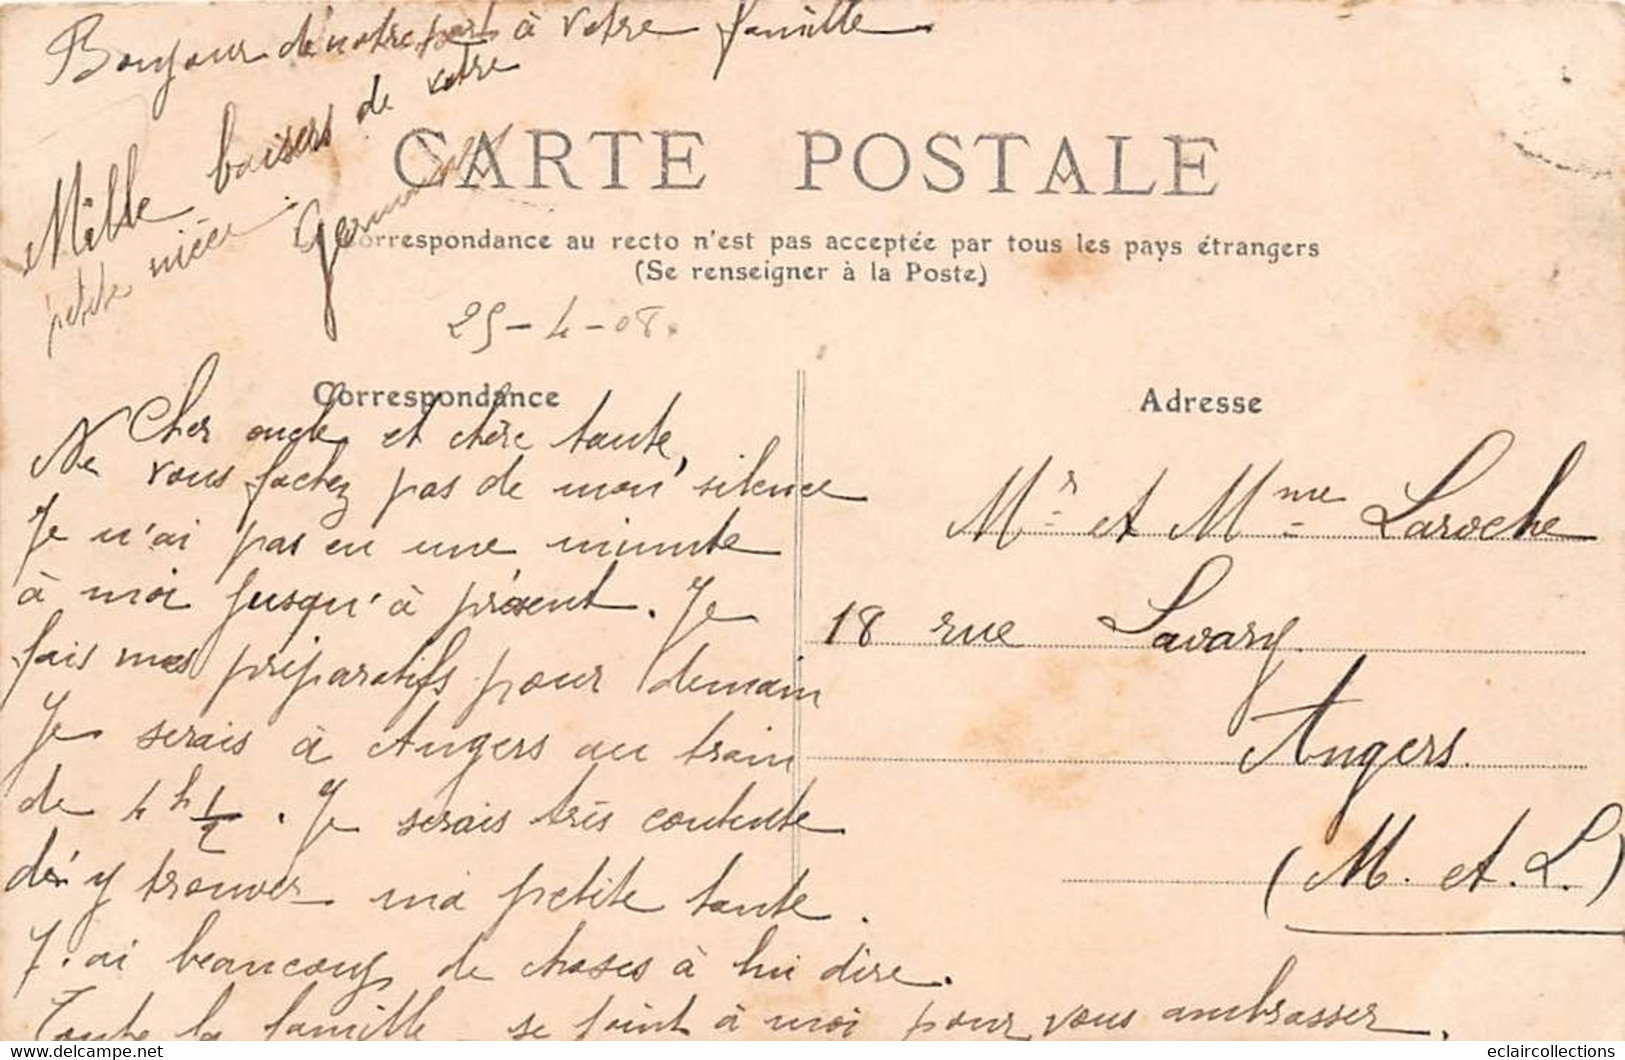 Bonjour de notre part à votre famille
Mille baisers de votre
petite nièce Germaine
CARTE POSTALE
Correspondance au recto n'est pas acceptée par tous les pays étrangers
(Se renseigner à la Poste)
25-4-08.
Correspondance
Adresse
Cher oncle et chère tante,
Ne vous fachez pas de mon silence
Je n'ai pas eu une minute
à moi jusqu'à présent. Je
fais mes préparatifs pour demain
Je serais à Angers au train
de 4h 1/2. Je serais très contente
d'y trouver ma petite tante.
J'ai beaucoup de choses à lui dire.
Toute la famille se joint à moi pour vous ambrasser.
Mr et Mme Laroche
18 rue Savary
Angers.
(M. et. L.)
eclaircollections | www.delcampe.net